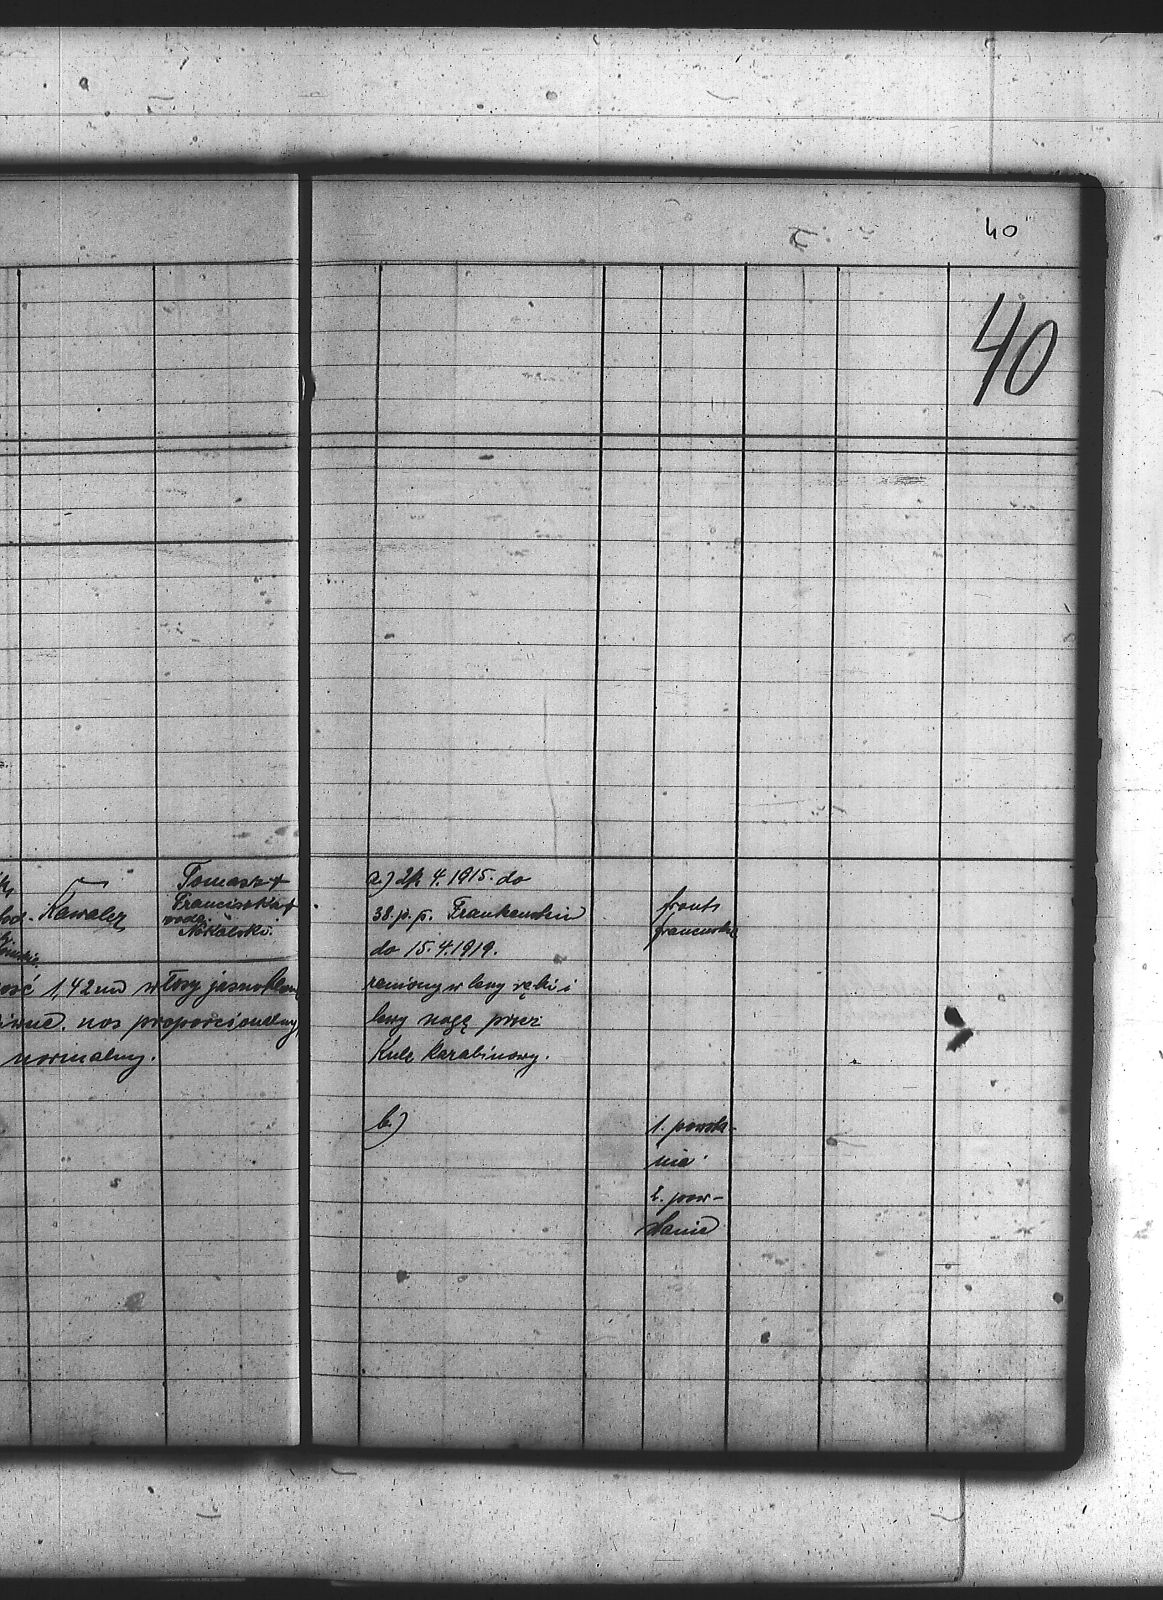 40
40
Kawaler
Tomasz +
Franciszka +
Nokalski.
ość 1,42 m włosy jasnoblond
nos proporcionalny,
normalny.
a.) 24 4. 1915. do
38. p. p. Frankenstein
do 15. 4. 1919.
raniony w lewy rękę i
lewy nogę przez
Kule karabinowy.
front
francuski
b.)
1. powsta-
nie
2. pow-
stanie